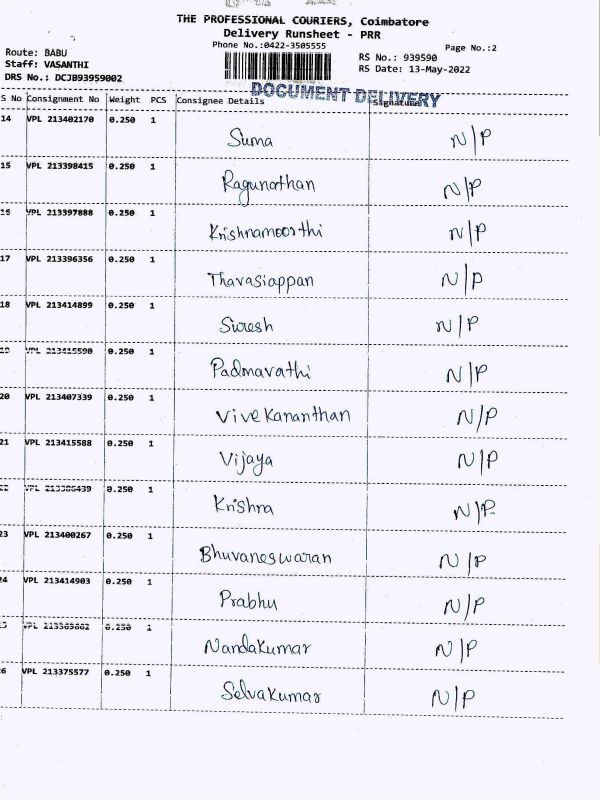 THE PROFESSIONAL COURIERS, Coimbatore
Delivery Runsheet - PRR
Phone No.:0422-3505555 Page No.:2
Route: BABU RS No.: 939590
Staff: VASANTHI RS Date: 13-May-2022
DRS No.: DCJB93959002
DOCUMENT DELIVERY
S No Consignment No Weight PCS Consignee Details Signature
14 VPL 213402170 0.250 1 Suma N/P
15 VPL 213398415 0.250 1 Ragunathan N/P
16 VPL 213397888 0.250 1 Krishnamoorthi N/P
17 VPL 213396356 0.250 1 Thavasiappan N/P
18 VPL 213414899 0.250 1 Suresh N/P
VPL 213415590 0.250 1 Padmavathi N/P
20 VPL 213407339 0.250 1 Vivekananthan N/P
21 VPL 213415588 0.250 1 Vijaya N/P
VPL 0.250 1 Krishna N/P
23 VPL 213400267 0.250 1 Bhuvaneswaran N/P
24 VPL 213414903 0.250 1 Prabhu N/P
VPL 0.250 1 Nandakumar N/P
6 VPL 213375577 0.250 1 Selvakumar N/P